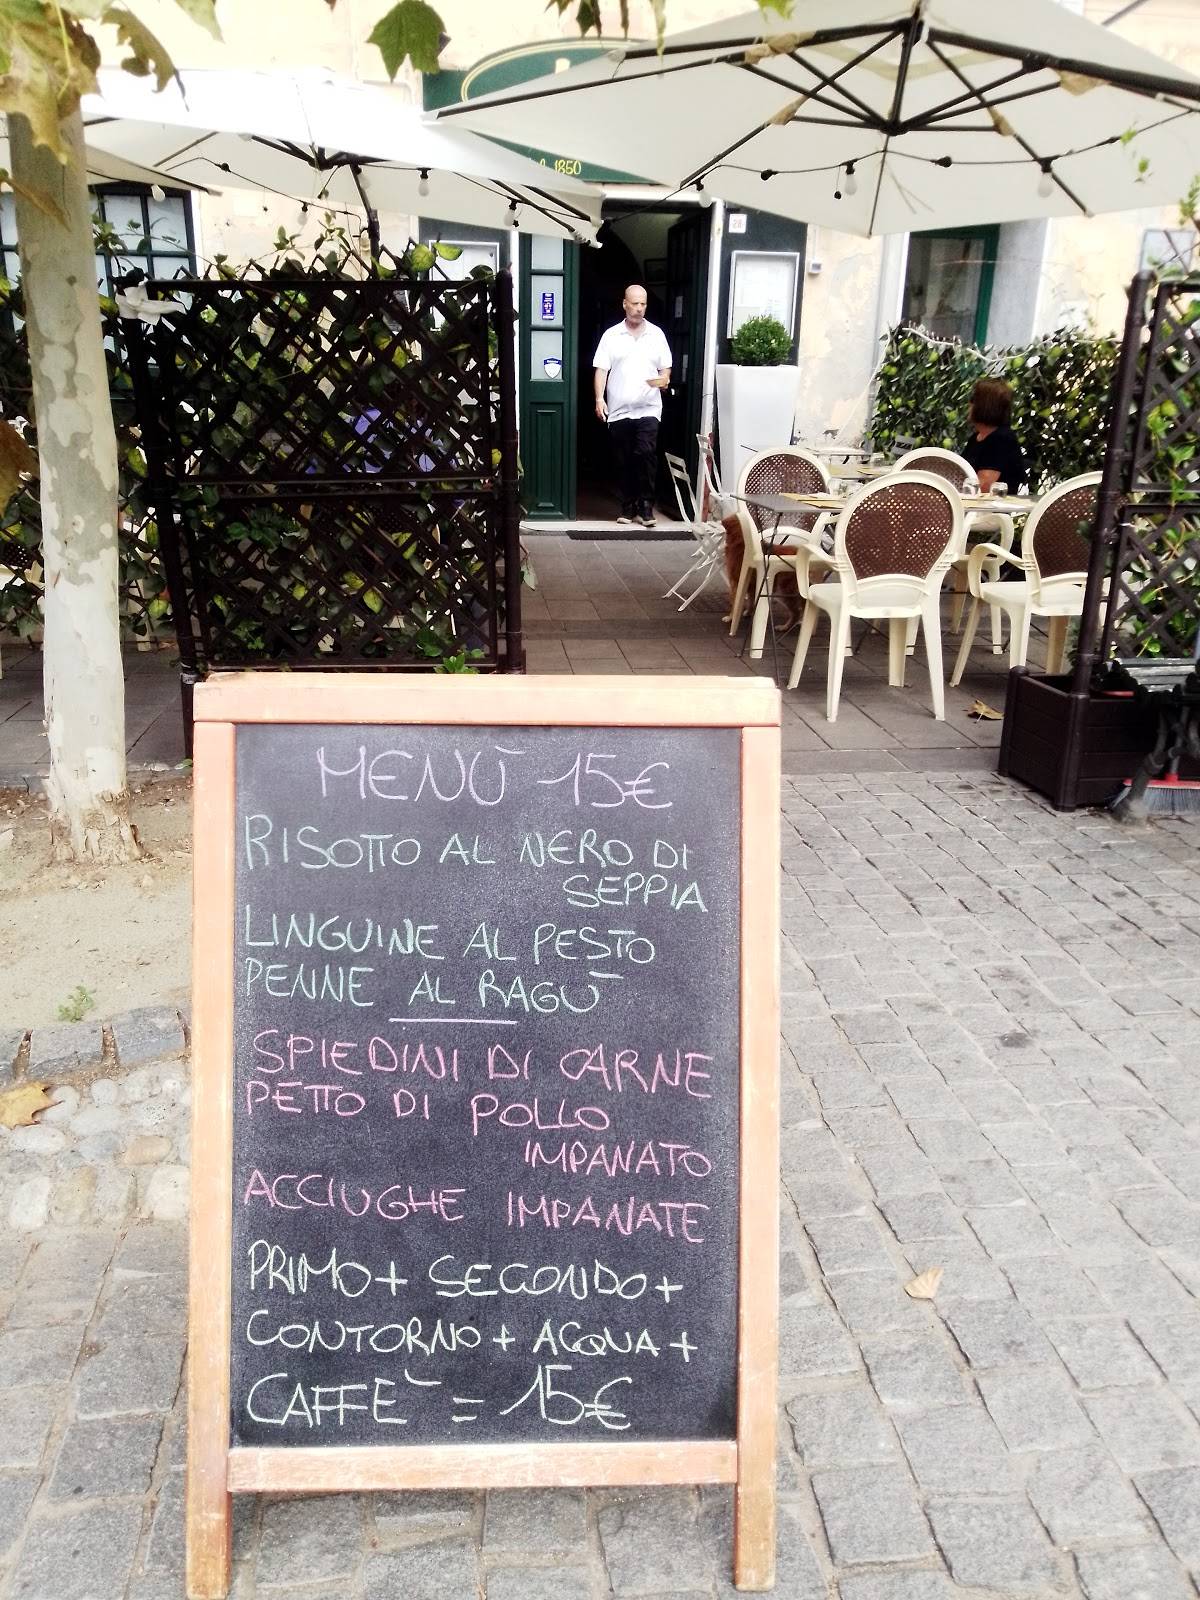 1850
28
MENÙ 15€
RISOTTO AL NERO DI
SEPPIA
LINGUINE AL PESTO
PENNE AL RAGÙ
SPIEDINI DI CARNE
PETTO DI POLLO
IMPANATO
ACCIUGHE IMPANATE
PRIMO + SECONDO +
CONTORNO + ACQUA +
CAFFE` = 15€